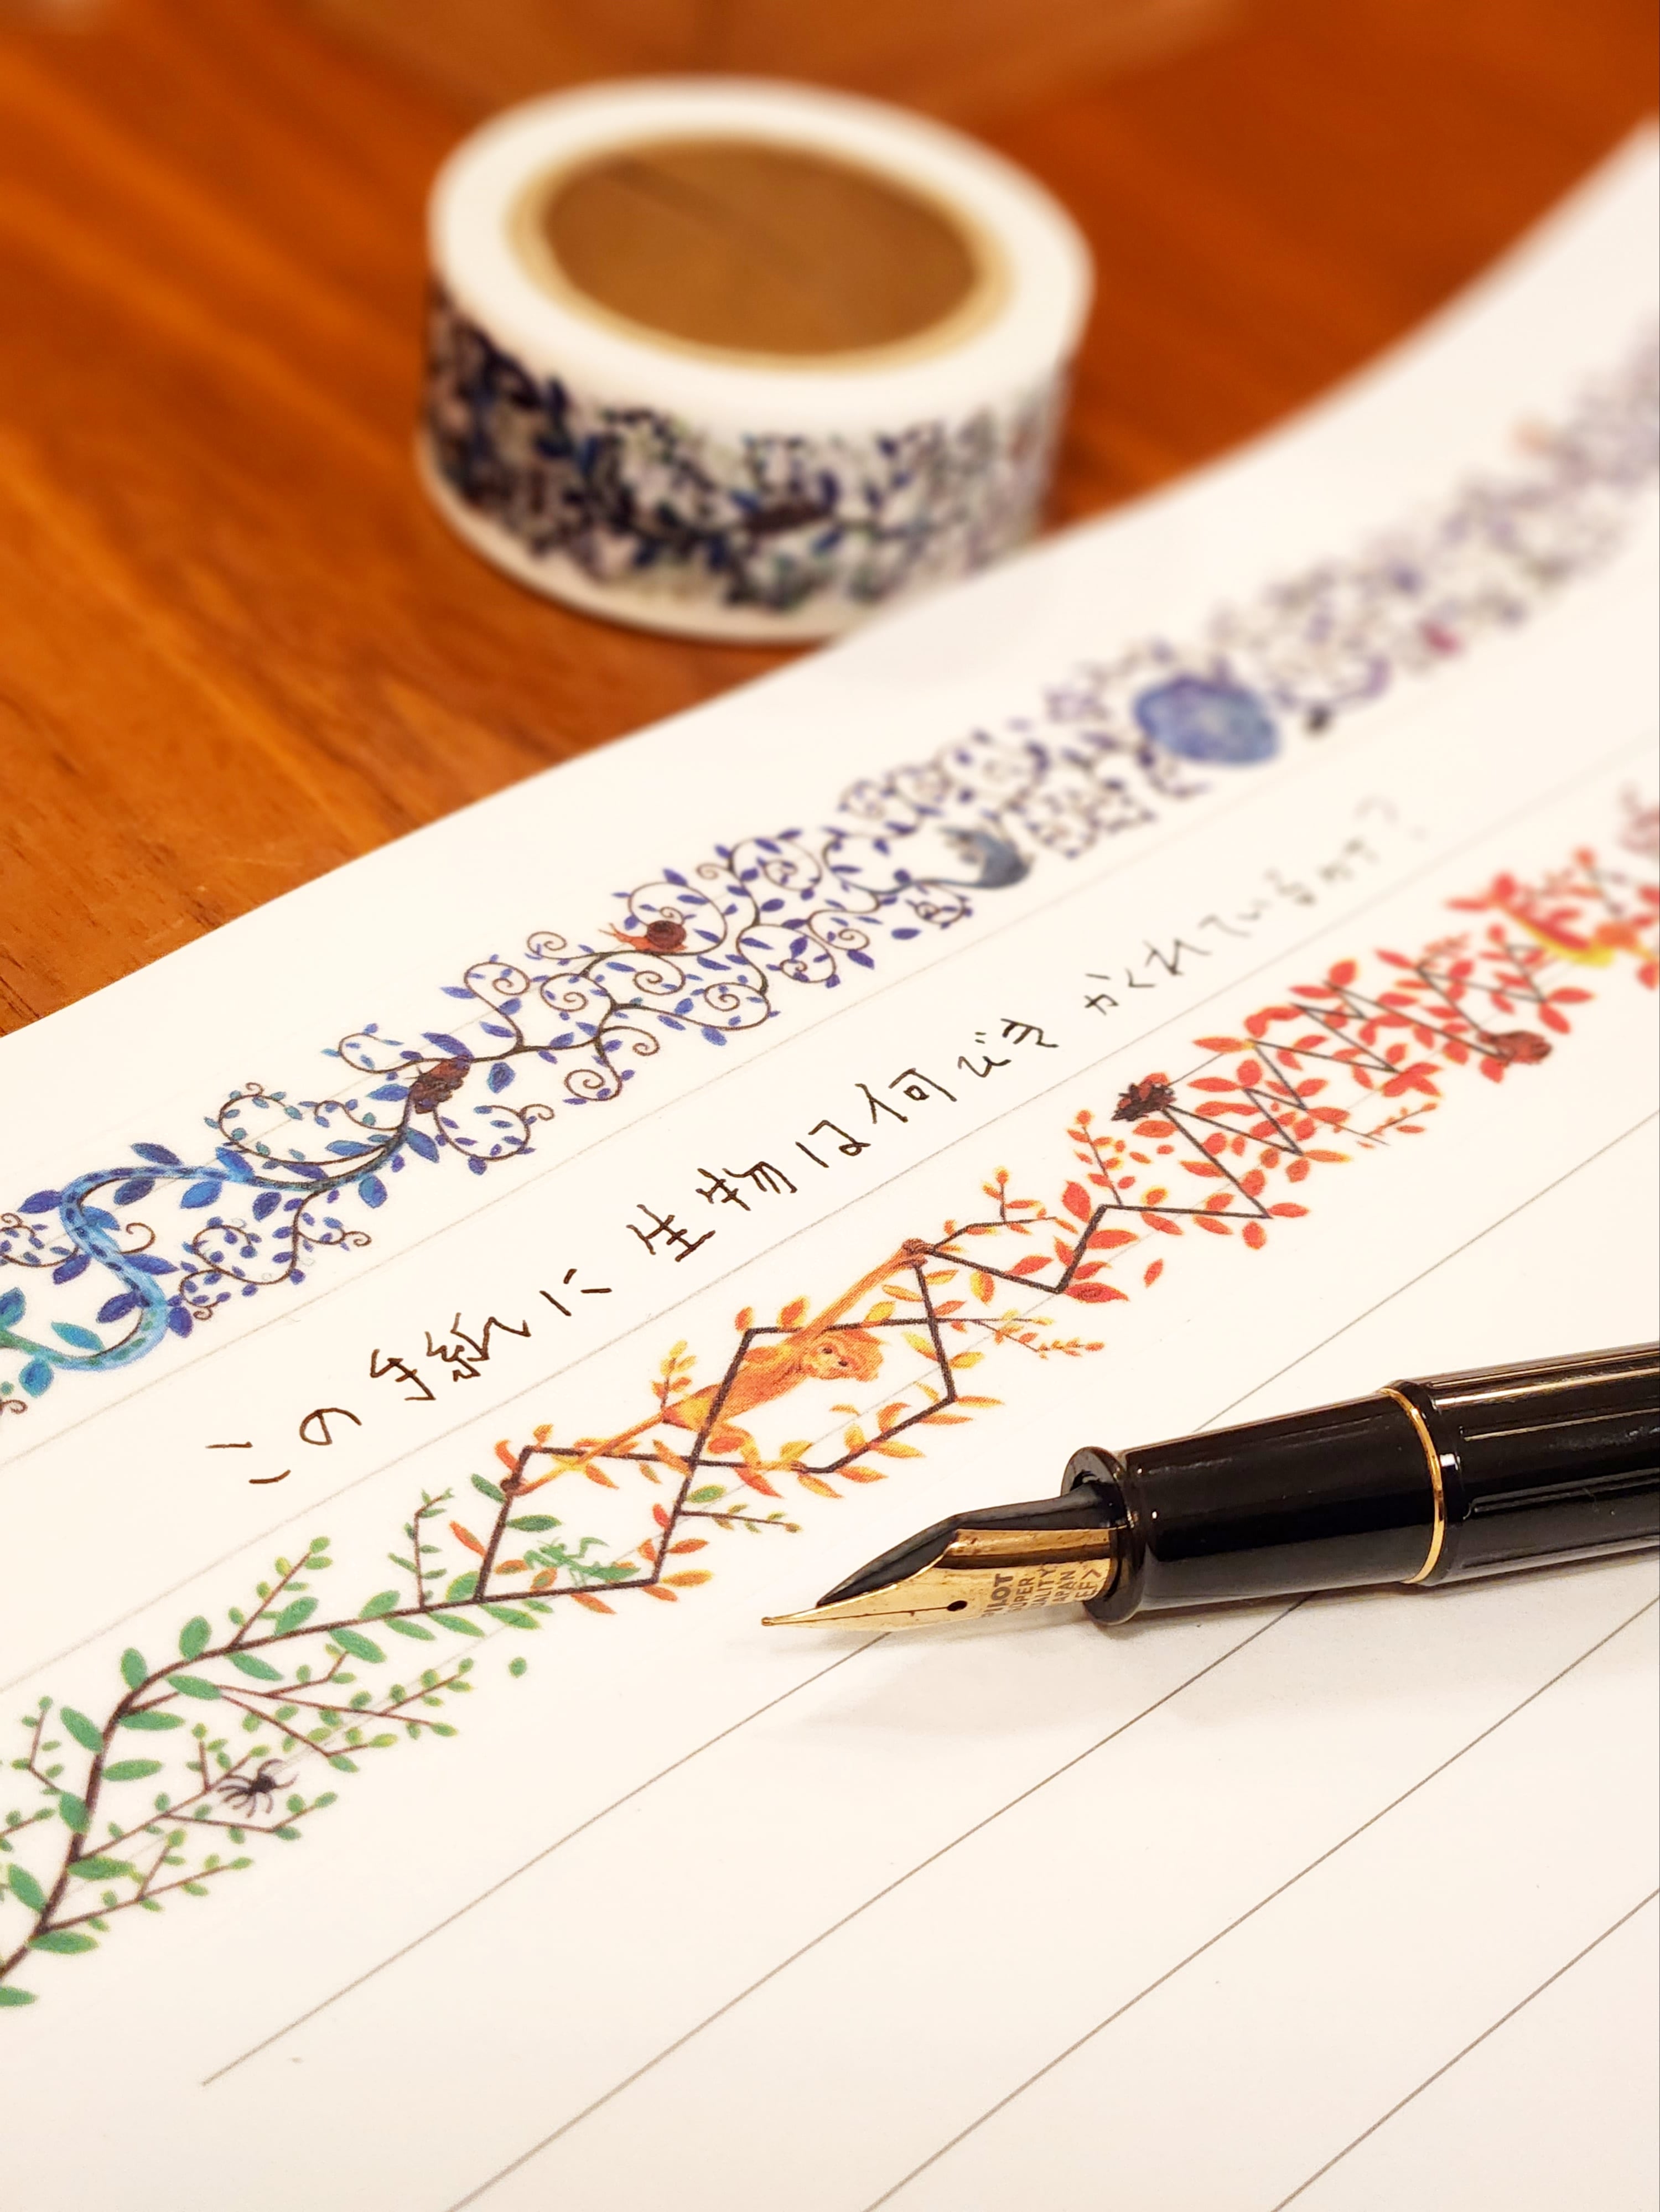 この手紙に生物は何びきかくれているか？
PILOT
SUPER
QUALITY
JAPAN
<EF>